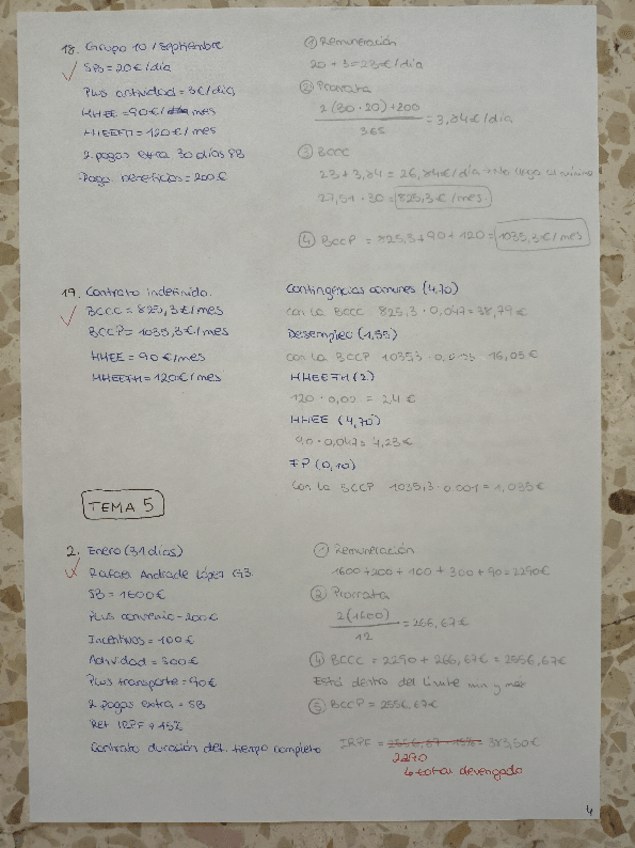 18. Grupo 10 / septiembre
SB = 20€/día
Plus actividad = 3€/día
HHEE = 90€/ mes
HHEEFM = 120€/mes
2 pagas extra 30 días SB
Paga beneficios = 200€
① Remuneración
20 + 3 = 23€/día
② Prorrata
2(30·20)+200
365
= 3,84€/día
③ BCCC
23 + 3,84 = 26,84€/día no llega al mínimo
27,51 · 30 = 825,3€/mes.
④ BCCP = 825,3+90+120 = 1035,3€/mes
19. Contrato indefinido.
BCCC = 825,3€/mes
BCCP = 1035,3€/mes
HHEE = 90€/mes
HHEEFM = 120€/mes
Contingencias comunes (4,70)
con la BCCC 825,3 · 0,047 = 38,79€
Desempleo (1,55)
con la BCCP 1035,3 · 16,05€
HHEEFM (2)
120 · 0,02 = 2,4€
HHEE (4,70)
90 · 0,047 = 4,23€
FP (0,10)
Con la BCCP 1035,3 · 0,001 = 1,035€
TEMA 5
2. Enero (31 días)
Rafael Andrade López G3.
SB = 1600€
Plus convenio = 200€
Incentivos = 100€
Actividad = 300€
Plus transporte = 90€
2 pagas extra = SB
Ret IRPF = 15%
Contrato duración det. tiempo completo
① Remuneración
1600+200+100+300+90 = 2290€
② Prorrata
2(1600)
12
= 266,67€
④ BCCC = 2290 + 266,67€ = 2556,67€
Está dentro del límite min y máx
⑤ BCCP = 2556,67€
IRPF = 2556,67 · 15% = 383,50€
2290
↳ total devengado
4